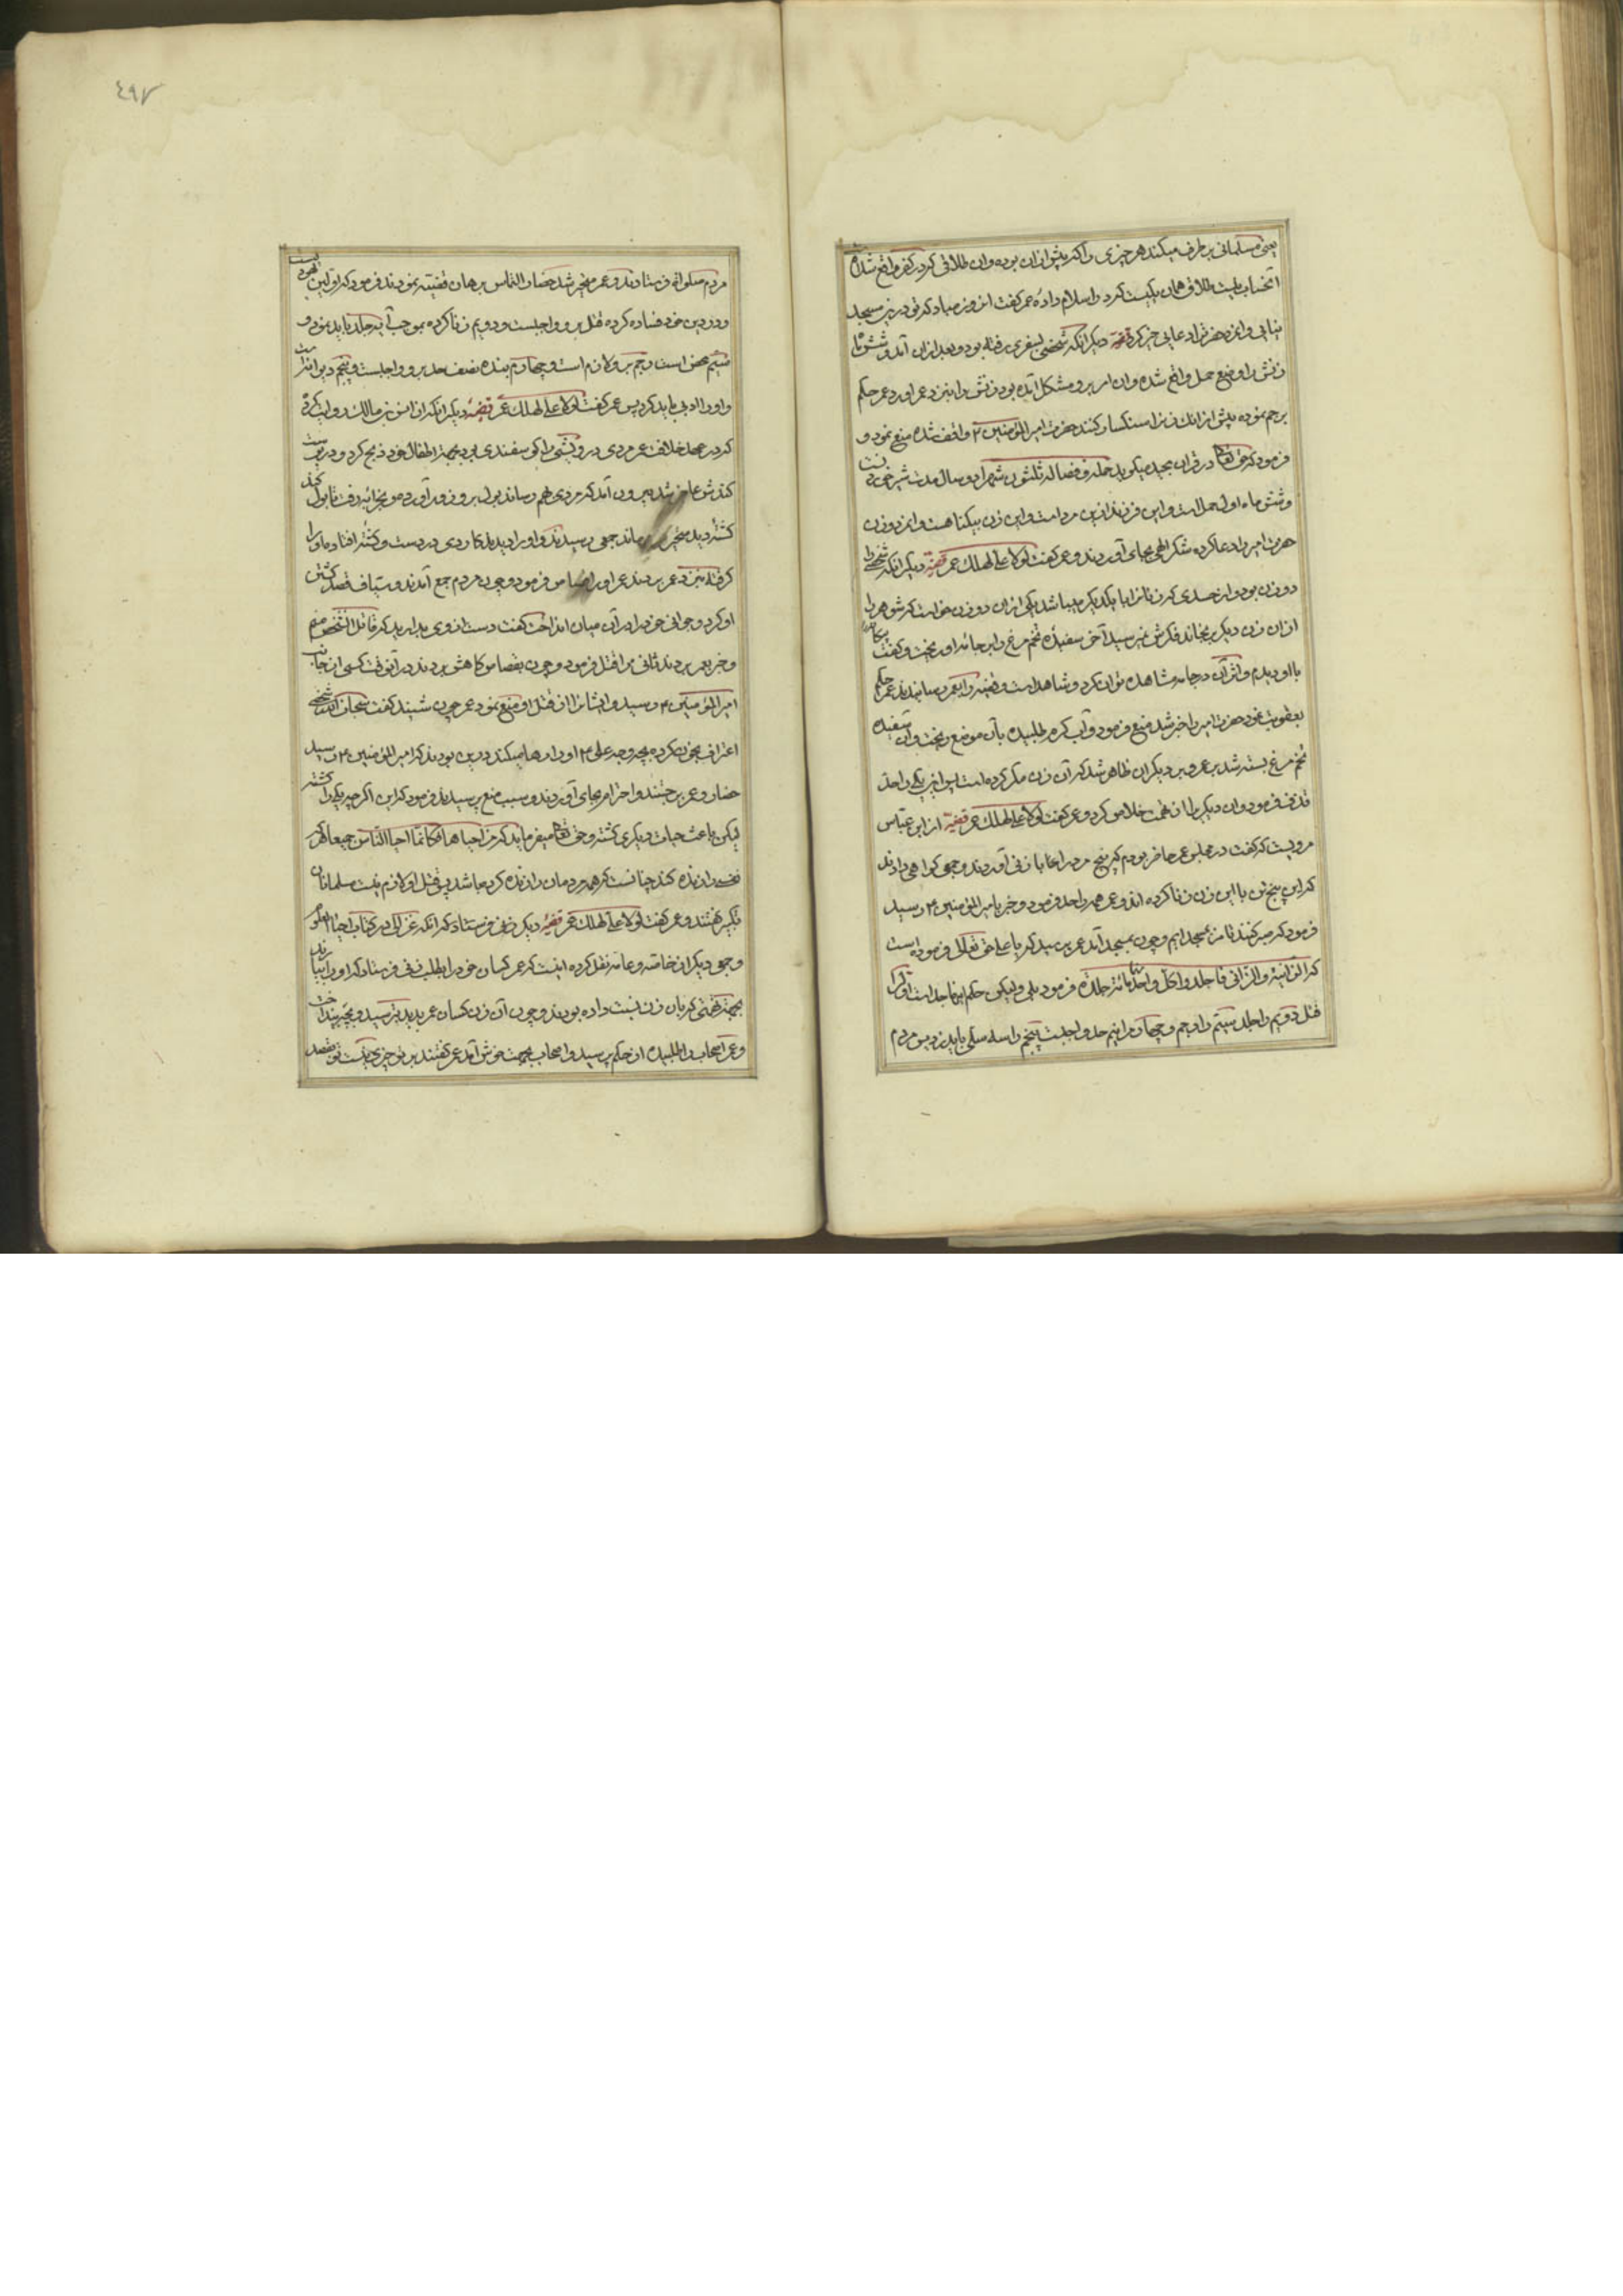 یعنی مسلمانی بر طرف میکند هر چیزی را که پیش از ان بوده و ان طلاقی که در کفر واقع شده
انحساب نیست طلاق همان یکیست که در اسلام داده عمر کفت این روز مباد که تو در زیر مسجد
نباشی و انحضرت را دعای خیر کرد قضیه دیکر انکه شخصی بسفری رفته بود و بعد از ان آمد و شش ماه
زنش را وضع حمل واقع شده و ان امر برو مشکل آمده بود زنش را بنزد عمر اورد عمر حکم
برجم نموده پیش از انک زنرا سنکسار کنند حضرت امیر المؤمنین ۴ واقف شده منع نمود و
فرمود که حق تعالی در قران مجید میکوید حمله و فصاله ثلثون شهرا دو سال مدت شیر خوردنست
و شش ماه اول حمل است و این فرزند از این مرد است و این زن بیکناهست و این دو زن
حضرت امیر را دعا کرده شکر الهی بجای آوردند و عمر کفت لولا علی لهلک عمر قضیه دیکر انکه شخصی را
دو زن بود و از حسدی که زنانرا با یکدیکر میباشد یکی از ان دو زن خواست که شوهر را
از ان زن دیکر برنجاند فکرش نرسید آخر سفیده تخم مرغ را بر جامه او ریخت و کفت
با او دیدم و اثر آن در جامه مشاهده توان کرد و شاهد است و قضیه را بعمر رسانیدند عمر حکم
بعقوبت نمود حضرت امیر را خبر شد منع فرمود و آب کرم طلبیده بآن موضع ریخت و آن سفیده
تخم مرغ بسته شد بر عمر و بر دیکران ظاهر شد که آن زن مکر کرده است پس این یکی را حد
قذف فرمود و ان دیکر را از تهمت خلاص کرد و عمر کفت لولا علی لهلک عمر قضیه از ابن عباس
مرویست که کفت در مجلس عمر حاضر بودم که پنج مرد را با زنی آوردند و جمعی کواهی دادند
که این پنج تن با این زن زنا کرده اند و عمر همه را حد فرمود و خبر بامیر المؤمنین ۴ رسید
فرمود که صبر کنند تا من بمسجد ایم و چون بمسجد آمد عمر پرسید که یا علی حق تعالی فرموده است
که الزانیة والزانی فاجلدوا کل واحد منهما مائة جلدة فرمود بلی ولیکن حکم اینها جداست اول را
قتل دویم را جلد سیم را رجم و چهارم را نیم حد واجبست پنجم را سه سیلی باید زد پس مردم
مردم صلواة فرستادند و عمر متحیر شد حضار التماس برهان قضیه نمودند فرمود که اولین یهودیست
و در دین خود فساد کرده قتل بر او واجبست و دویم زنا کرده بموجب آیه جلد باید نمود و
سیم محصن است رجم برو لازم است و چهارم بنده نصف حد برو واجبست و پنجم دیوانه است
و او را ادبی باید کرد پس عمر کفت لولا علی لهلک عمر قضیه دیکر انکه از انس بن مالک روایت کرده
که در عهد خلافت عمر مردی درویشی را کوسفندی بود بجهة اطفال خود ذبح کرد و در پوست
کندنش عاجز شده بیرون آمد که مردی بهم رساند بول برو زور آورده بخرابه رفت تا بول کند
کشته دید متحیر بماند جمعی رسیدند و او را دیدند کاردی در دست و کشته افتاده او را
کرفته بنزد عمر بردند عمر او را قصاص فرمود و چون مردم جمع آمدند و سیاف قصد کشتن
او کرد و جوانی خود را در آن میان انداخت کفت دست از وی بدارید که قاتل ان شخص منم
و خبر بعمر بردند ثانی را قتل فرمود و چون بقصاص کاهش بردند در آنوقت کسی از جانب
امیر المؤمنین ۴ رسید و ایشانرا از قتل او منع نمود عمر چون شنید کفت سبحان الله شخصی
اعتراف بخون کرده بچه وجه علی ۴ او را رها میکند درین بودند که امیر المؤمنین ۴ رسید
حضار و عمر برجستند و احترام بجای آوردند و سبب منع پرسیدند فرمود که این اکر چه یکی را کشته
لیکن باعث حیات دیکری کشته و حق تعالی میفرماید که من احیاها فکانما احیا الناس جمیعا هر که
نفسی را زنده کند چنانست که همه مردمان را زنده کرده باشد پس قتل او لازم نیست مسلمانان
تکبیر کفتند و عمر کفت لولا علی لهلک عمر قضیه دیکر زنی فرستاد که انکه غزالی در کتاب احیاء العلوم
و جمعی دیکر از خاصه و عامه نقل کرده اینست که عمر کسان خود را بطلب زنی فرستاد که او را بیارند
بجهة تهمتی که بان زن نسبت داده بودند و چون آن زن کسان عمر بدید بترسید و بچه بینداخت
و عمر اصحاب را طلبیده از حکم پرسید و اصحاب بجهت خوش آمد عمر کفتند بر تو چیزی نیست تو قصد
٤٩٧